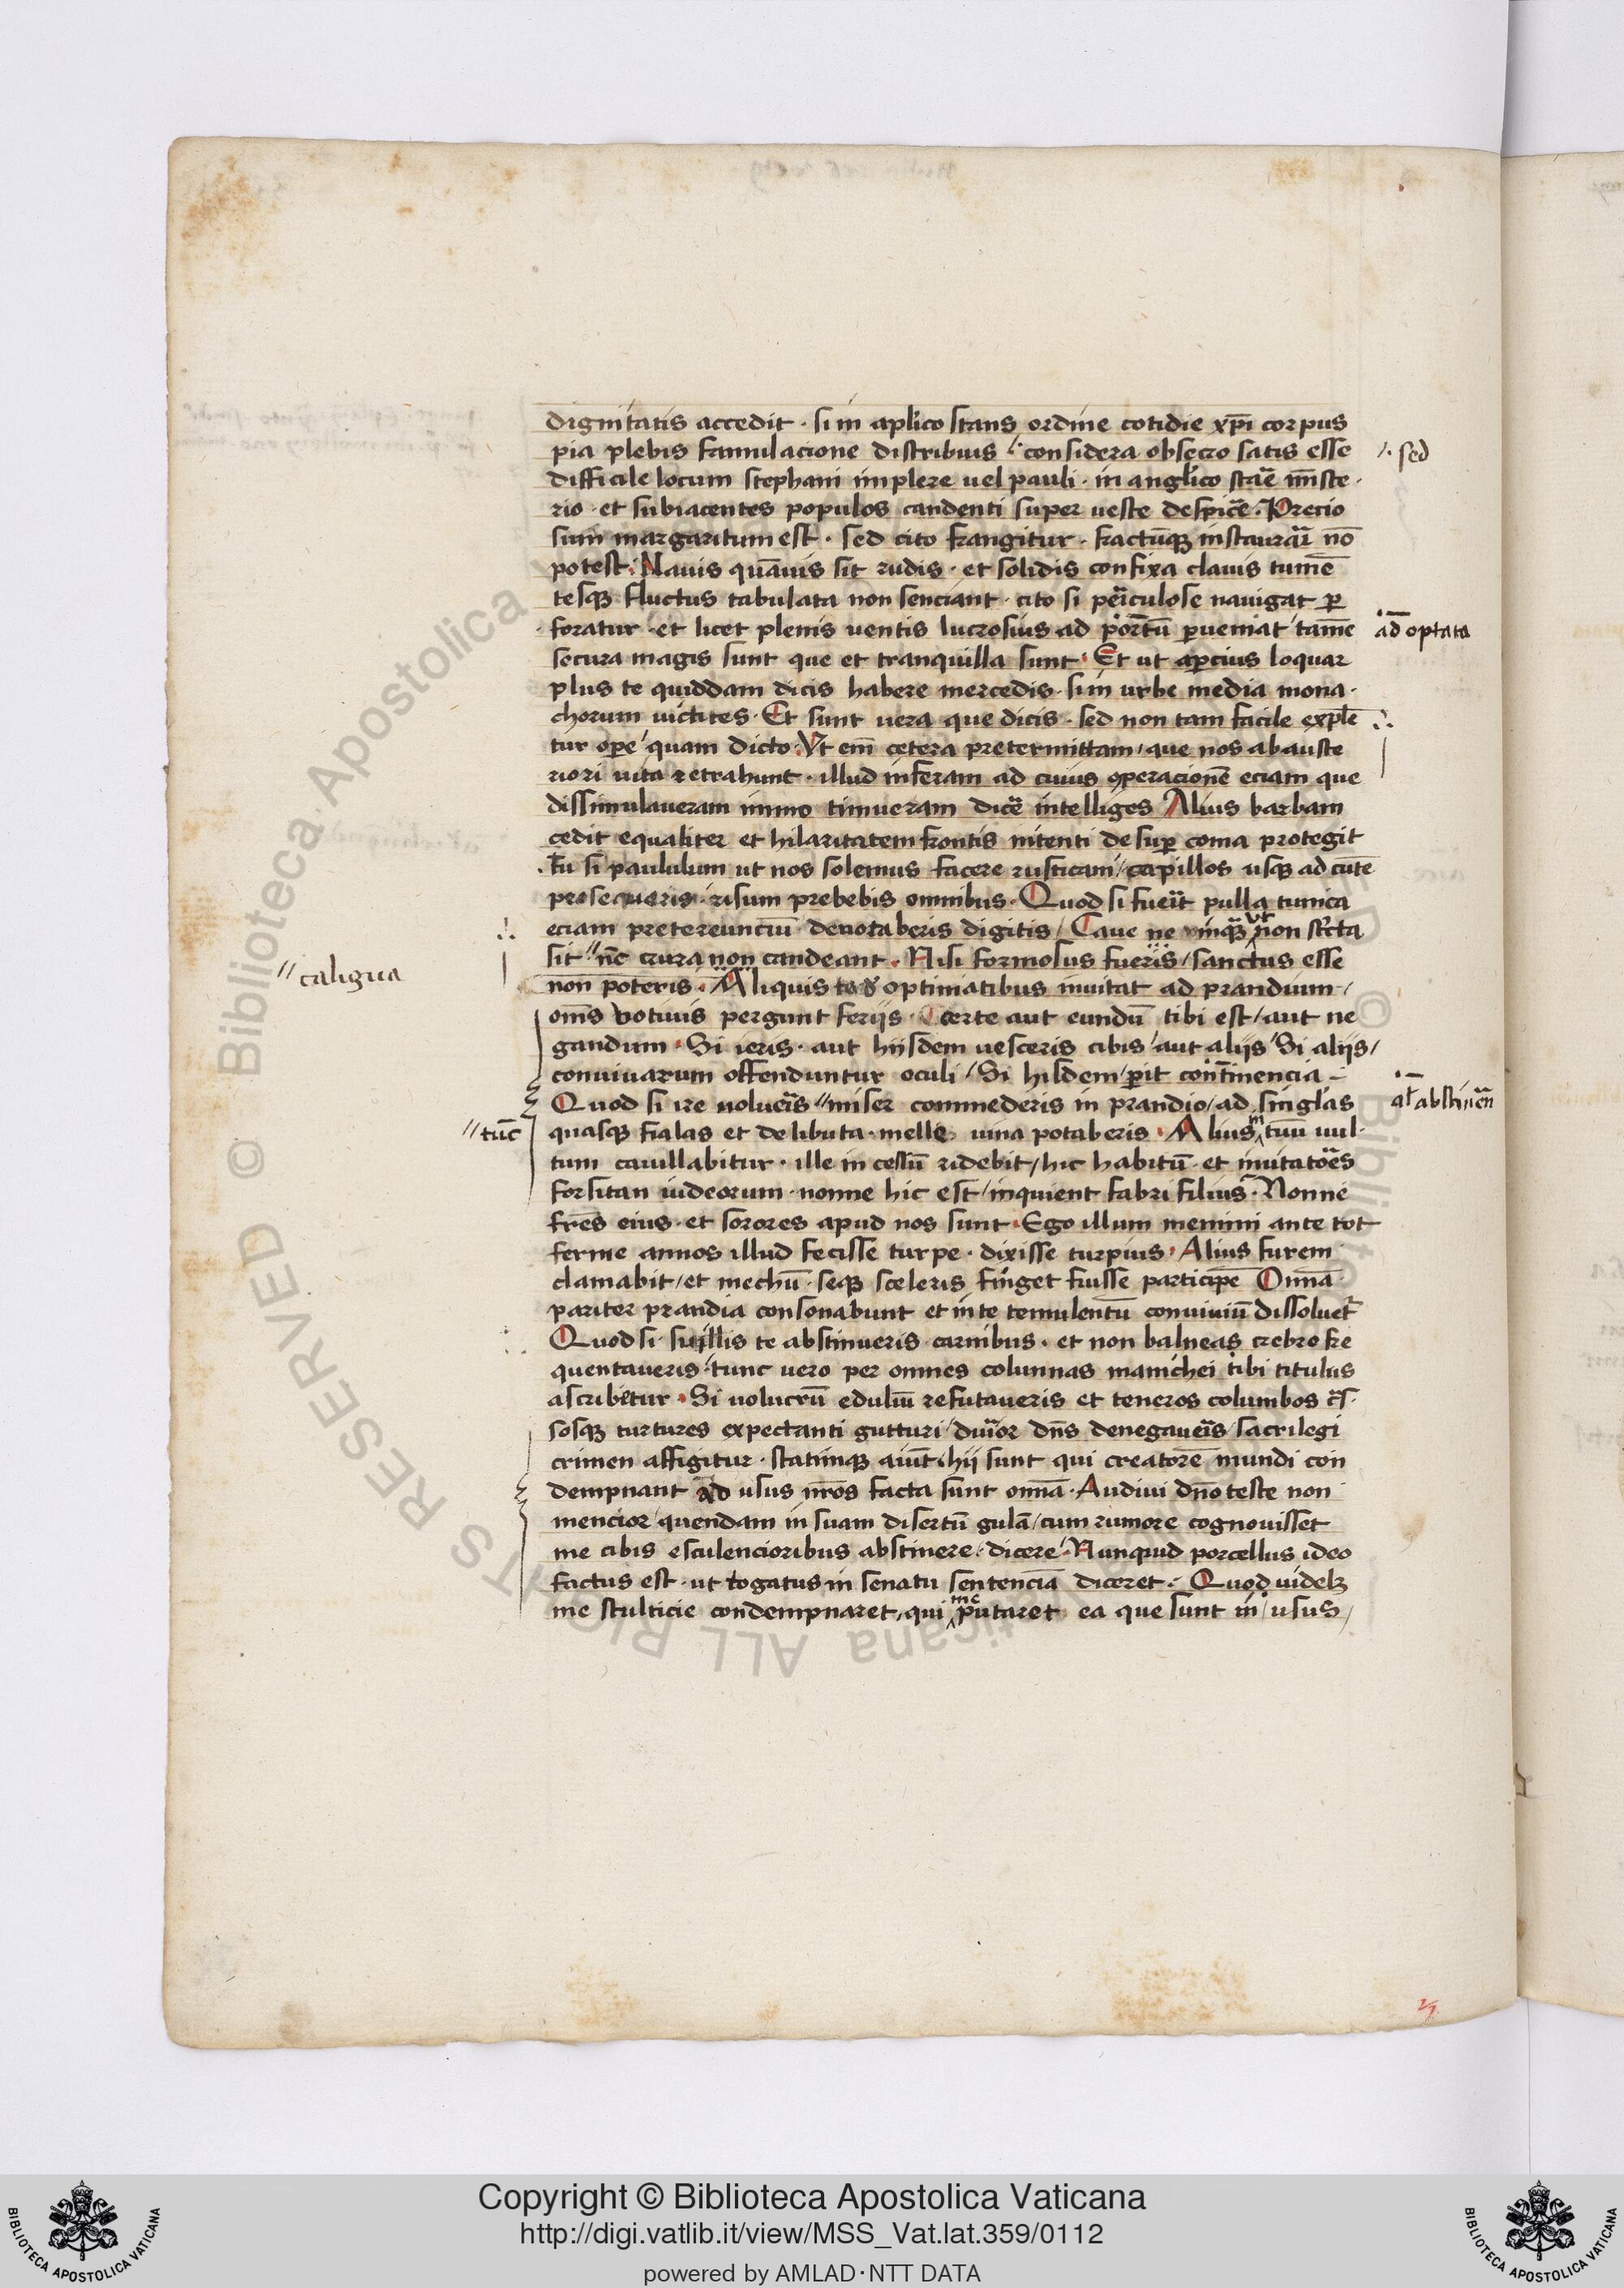 dignitatis accedit · si in aplico stans ordine cotidie xpi corpus
pia plebis famulacione distribuis /· considera obsecro satis esse
/· sed
difficile locum stephani implere uel pauli · in anglico stare mi̅ste
rio · et subiacentes populos candenti super ueste despice̅ · Precio
sum margaritum est · sed cito frangitur · fractu̅q; instaurar̅ no̅
potest · Nauis qua̅uis sit rudis · et solidis confixa clauis tume̅
tesq; fluctus tabulata non senciant · cito si periculose nauigat p̲
foratur · et licet plenis uentis lucrosius ad portu̅ p̲ueniat / tame̅
ad optata
secura magis sunt que et tranquilla sunt · Et ut ap̲cius loquar
plus te quiddam dicis habere mercedis · si in urbe media mona
chorum uictites · Et sunt uera que dicis · sed non tam facile exple̅
tur op̲e / quam dicto · Ut em̅ cetera pretermittam / que nos ab auste
riori uita retrahunt · illud inferam ad cuius operacione̅ eciam que
dissimulaueram immo timueram dice̅ intelliges Alius barbam
cedit equaliter et hilaritatem frontis nitenti desup̲ coma protegit
· tu si paululum ut nos solemus facere rusticam / capillos usq; ad cute̅
prosequeris · risum prebebis omnibus · Quod si fuerit pulla tunica
eciam pretereunciu̅ denotaberis digitis / Caue ne unq̅ ut non stricta
sit // ne crura non candeant · Nisi formosus fueris / sanctus esse
// caligua
non poteris · Aliquis te de optimatibus inuitat ad prandium /
om̅s uotiuis pergunt ferijs · Certe aut eundu̅ tibi est / aut ne
gandum · Si ieris · aut hijsdem uesceris cibis / aut alijs / Si alijs /
conuiuarum offenduntur oculi / Si hisdem / p̲it continencia -
al' abstinen̅
Quod si ire nolueris // miser commederis in prandio / ad sing̅las
// tu̅c
quasq; fialas et delibuta melle uina potaberis · Alius in tuu̅ uul
tum cauillabitur · ille incessu̅ ridebit / hic habitu̅ · et inuitatores
forsitan iudeorum · nonne hic est / inquient fabri filius · Nonne
fr̅es eius · et sorores apud nos sunt · Ego illum memini ante tot
ferme annos illud fecisse turpe · dixisse turpius · Alius furem
clamabit / et mechu̅ · seq; sceleris finget fuisse participe̅ Om̅a
pariter prandia consonabunt et in te temulentu̅ conuiuiu̅ dissoluet̅
Quod si suillis te abstinueris carnibus · et non balneas crebro fre
quentaueris / tunc uero per omnes columnas manichei tibi titulus
ascribetur · Si uolucru̅ eduliu̅ refutaueris et teneros columbos cras
sosq; turtures expectanti gutturi / durior dn̅s denegaueris / sacrilegi
crimen affigitur · statimq; aiu̅t / hij sunt qui creatore̅ mundi con
dempnant ad usus nr̅os facta sunt om̅a · Audiui dn̅o teste non
mencior / quendam in suam disertu̅ gula̅ / cum rumore cognouisset
me cibis esculencioribus abstinere · dicere / Nunquid porcellus ideo
factus est · ut togatus in senatu sentencia̅ diceret · Quod uidelz
me stulticie condempnaret / qui me putaret ea que sunt in / usus /
Copyright © Biblioteca Apostolica Vaticana
http://digi.vatlib.it/view/MSS_Vat.lat.359/0112
powered by AMLAD·NTT DATA
BIBLIOTECA APOSTOLICA VATICANA
BIBLIOTECA APOSTOLICA VATICANA